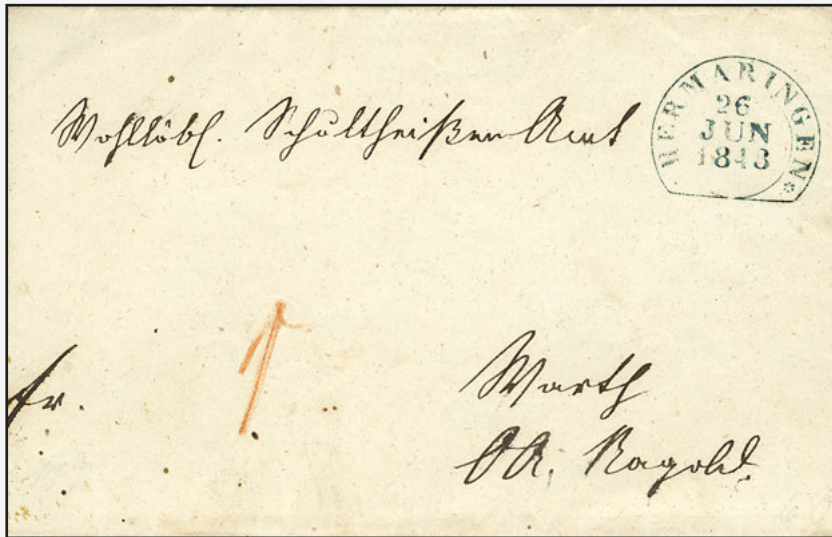 Wohllöbl. Schultheißen Amt
HERMARINGEN
26
JUN
1843
fr.
Warth
OA. Nagold.